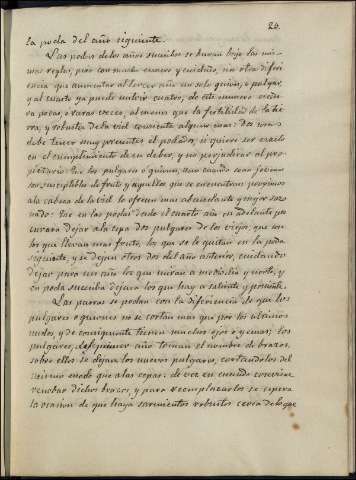 26.
la poda del año siguiente.
Las podas delos años sucesivos se haran bajo las mis-
mas reglas, pero con mucho esmero y cuidado, sin otra difer-
encia que aumentar al tercer año un solo guion, o pulgar,
y al cuarto ya puede unirsele cuatro, de este numero exceda
pocas, o raras veces, al menos que la fertilidad de la tie-
rra, y robustez de la vid consienta alguno mas: dos cosas
debe tener muy presentes el podador, si quiere ser exacto
en el cumplimiento de su deber, y no perjudicar al pro-
pietario: Que los pulgares o guiones, aun cuando sean jovenes
son susceptibles de fruto y aquellos que se encuentran proximos
ala cabeza de la vid lo ofrecen mas abundante y mejor sazo-
nado: Que en las podas desde el cuarto año en adelante pro-
curara dejar a la cepa dos pulgares de los viejos, que son
los que llevan mas fruto, los que se le quitan en la poda
siguiente, y se dejan otros dos del año anterior, cuidando
dejar para un año los que miran a mediodia y norte, y
en poda sucesiva dejara los que hay a saliente y poniente.
Las parras se podan con la diferencia de que los
pulgares o guiones no se cortan mas que por los ultimos
nudos, y de consiguiente tienen muchos ojos o yemas: los
pulgares, del primer año toman el nombre de brazos,
sobre ellos se dejan los nuevos pulgares, cortandolos del
mismo modo que alas cepas: de vez en cuando conviene
renobar dichos brazos, y para reemplazarlos se espera
la ocasion de que haya sarmientos robustos cerca delo que